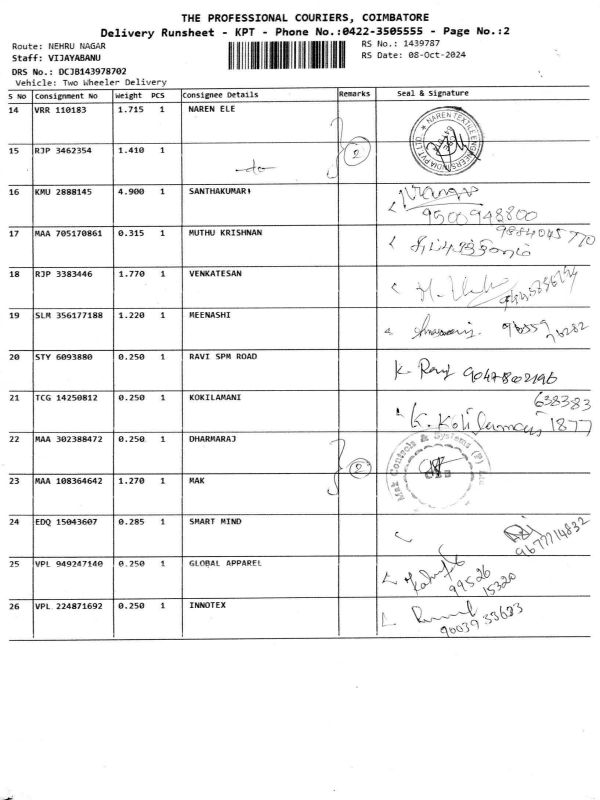 THE PROFESSIONAL COURIERS, COIMBATORE
Delivery Runsheet - KPT - Phone No.:0422-3505555 - Page No.:2
Route: NEHRU NAGAR
RS No.: 1439787
Staff: VIJAYABANU
RS Date: 08-Oct-2024
DRS No.: DCJB143978702
Vehicle: Two Wheeler Delivery
S No Consignment No Weight PCS Consignee Details Remarks Seal & Signature
14 VRR 110183 1.715 1 NAREN ELE
2
NAREN TEXTILE ENGINEERS INDIA PVT LTD.
15 RJP 3462354 1.410 1
16 KMU 2888145 4.900 1 SANTHAKUMARI
9500948800
17 MAA 705170861 0.315 1 MUTHU KRISHNAN 9884045770
18 RJP 3383446 1.770 1 VENKATESAN
19 SLM 356177188 1.220 1 MEENASHI
96559
76282
20 STY 6093880 0.250 1 RAVI SPM ROAD K Ravi 9047802196
21 TCG 14250812 0.250 1 KOKILAMANI 638383
K. Kokilamani 1877
22 MAA 302388472 0.250 1 DHARMARAJ
2
Mak Controls & Systems (P) Ltd
23 MAA 108364642 1.270 1 MAK
24 EDQ 15043607 0.285 1 SMART MIND
9677714832
25 VPL 949247140 0.250 1 GLOBAL APPAREL
99526
15320
26 VPL 224871692 0.250 1 INNOTEX
9003933633